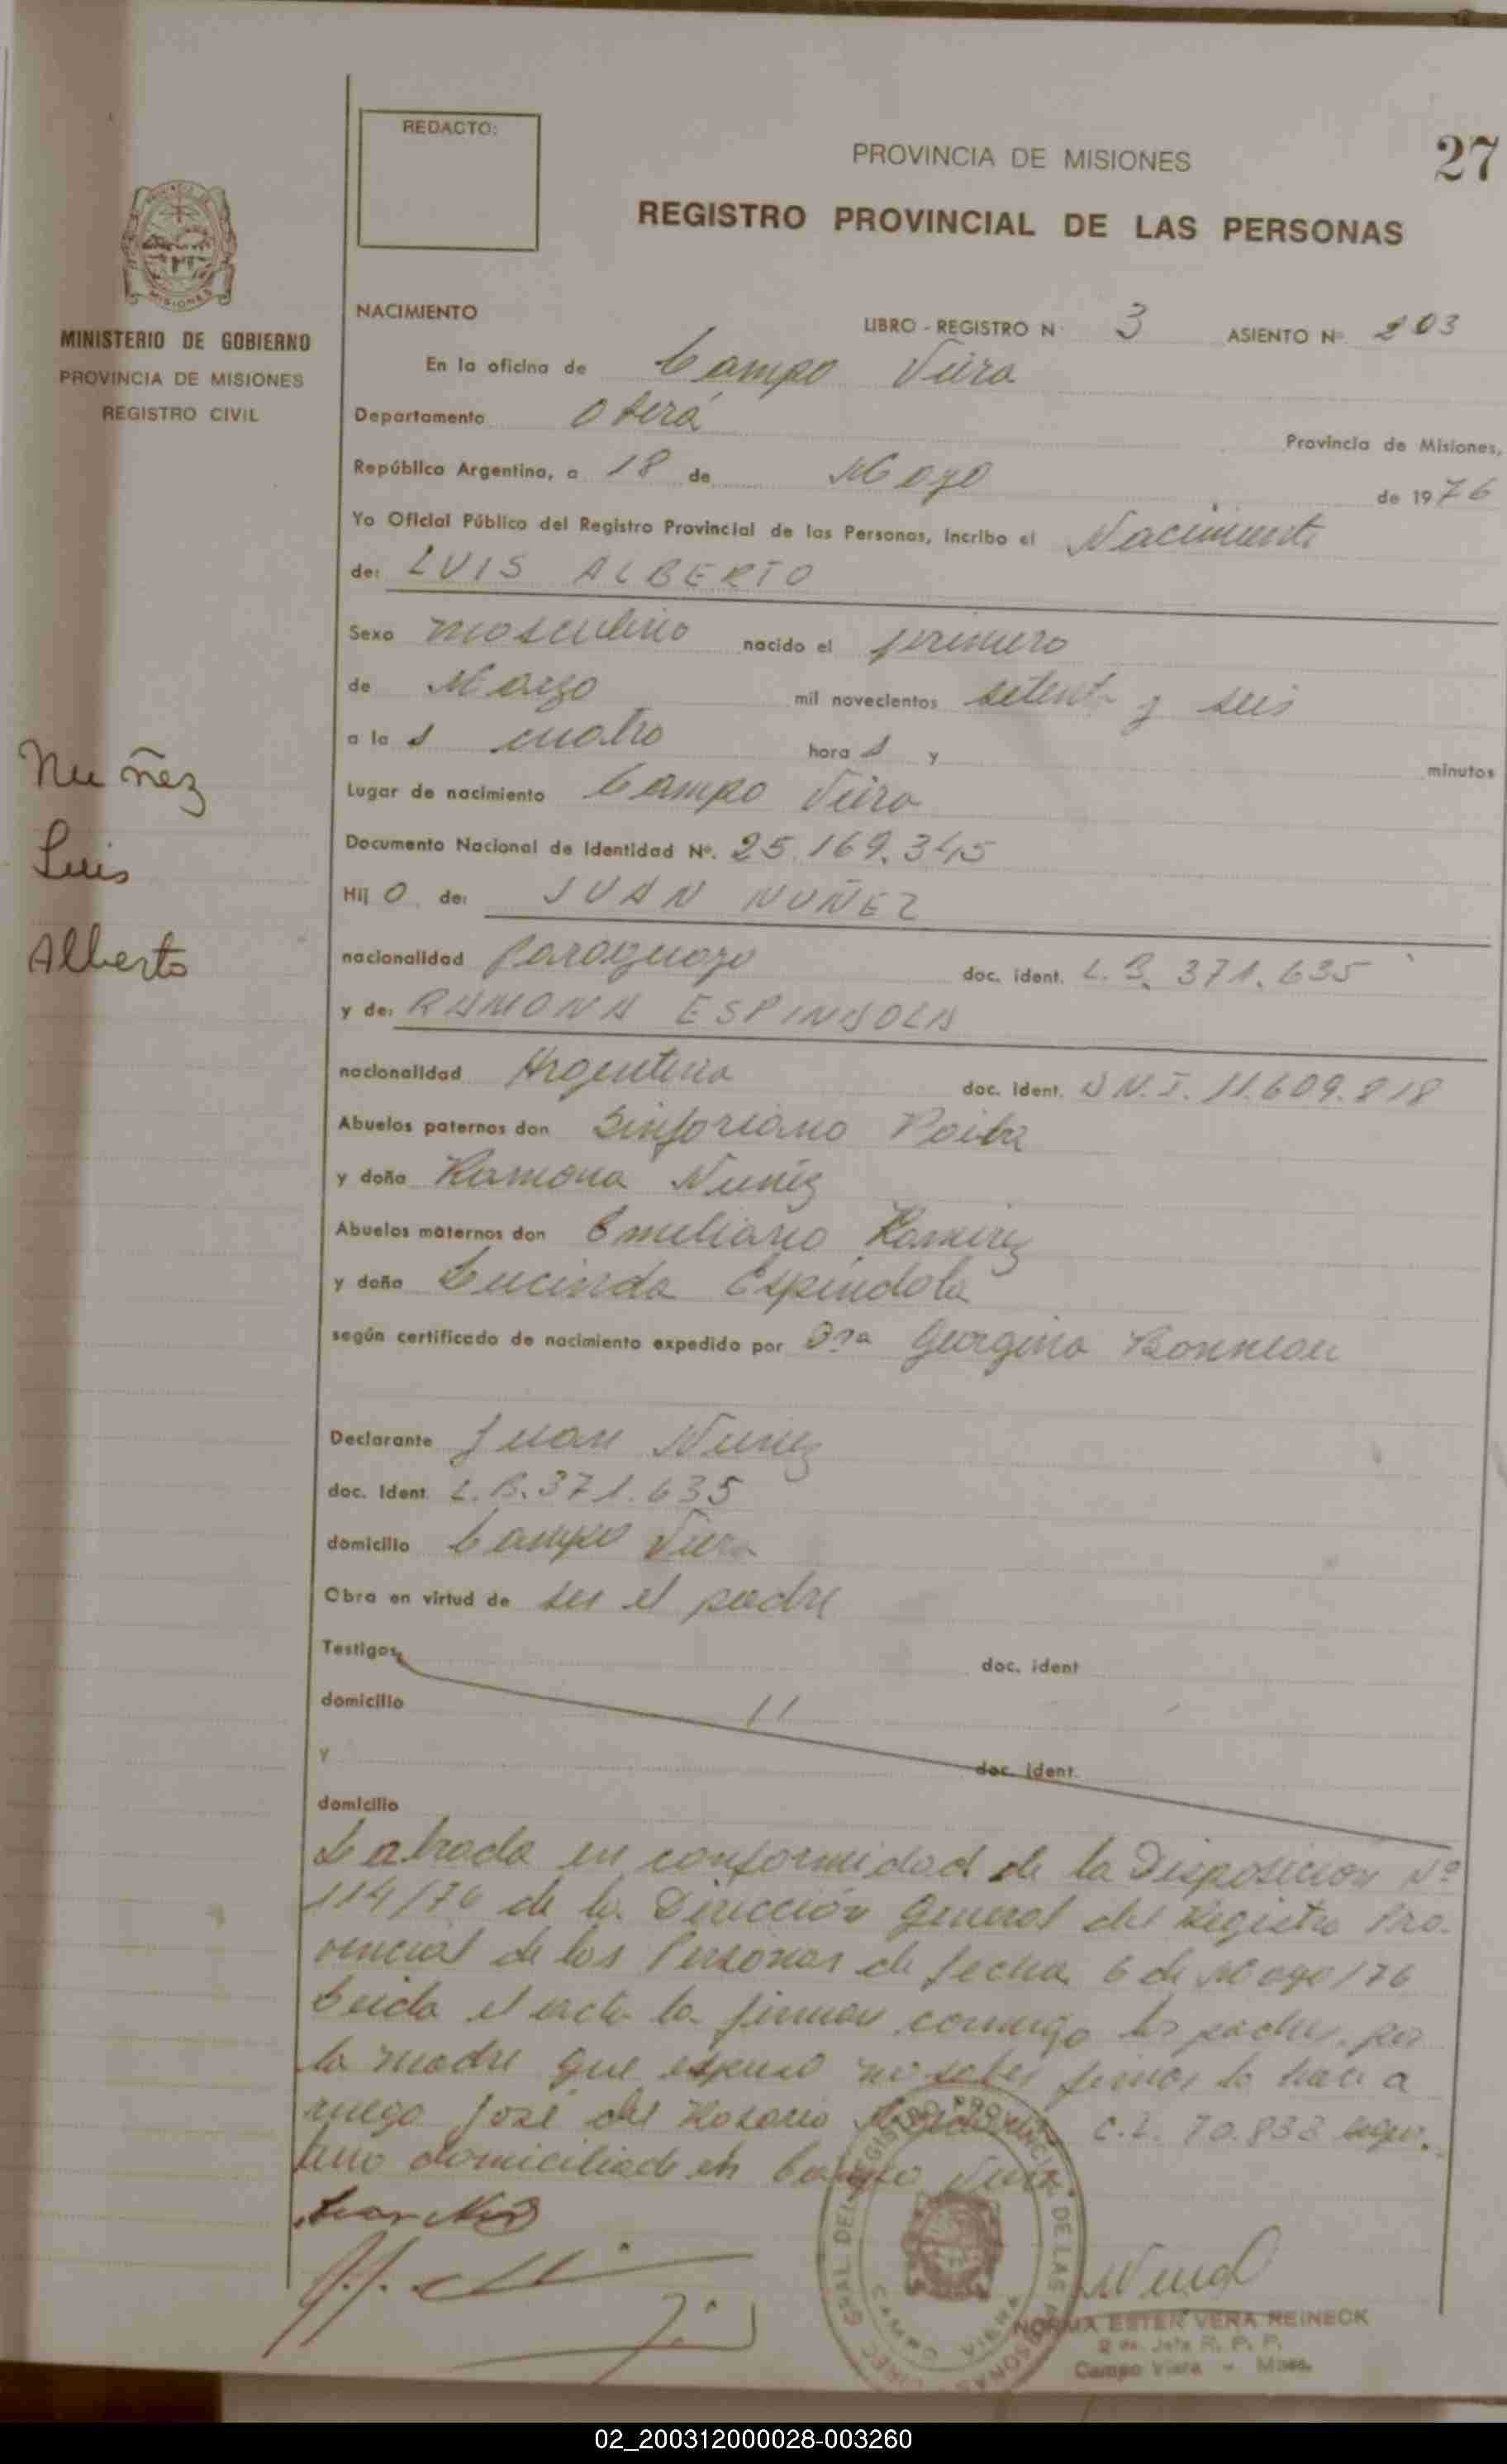 REDACTO:
PROVINCIA DE MISIONES
27
REGISTRO PROVINCIAL DE LAS PERSONAS
MISIONES
MINISTERIO DE GOBIERNO
PROVINCIA DE MISIONES
REGISTRO CIVIL
NACIMIENTO
LIBRO - REGISTRO N. 3 ASIENTO Nº 203
En la oficina de Campo Viera
Departamento Oberá
Provincia de Misiones,
República Argentina, a 18 de Mayo de 1976
Yo Oficial Público del Registro Provincial de las Personas, Incribo el Nacimiento
de: LUIS ALBERTO
Sexo masculino nacido el primero
de Marzo mil novecientos setenta y seis
a las cuatro horas y minutos
Lugar de nacimiento Campo Viera
Documento Nacional de Identidad Nº. 25.169.345
Hijo de: JUAN NUÑEZ
nacionalidad Paraguayo doc. ident. L.B. 371.635
y de: RAMONA ESPINDOLA
nacionalidad Argentina doc. ident. D N.I. 11.609.818
Abuelos paternos don Sinforiano Paiba
y doña Ramona Nuñez
Abuelos maternos don Emiliano Ramirez
y doña Lucinda Espindola
según certificado de nacimiento expedido por Dra Georgina Bonneau
Nuñez
Luis
Alberto
Declarante Juan Nuñez
doc. Ident. L.B. 371.635
domicilio Campo Viera
Obra en virtud de ser el padre
Testigos doc. ident
domicilio
y doc. ident.
domicilio
Labrada en conformidad de la Disposicion Nº
114/76 de la Dirección General del Registro Pro-
vincial de las Personas de fecha 6 de Mayo/76
Leida el acta la firman conmigo los padres, por
la madre que expuso no saber firmar lo hace a
ruego José del Rosario C.I. 70.833
domiciliado en Campo Viera
CAMPO VIERA
NORMA ESTER VERA REINECK
Jefe R. P. P.
Campo Viera - Mnes.
02_200312000028-003260